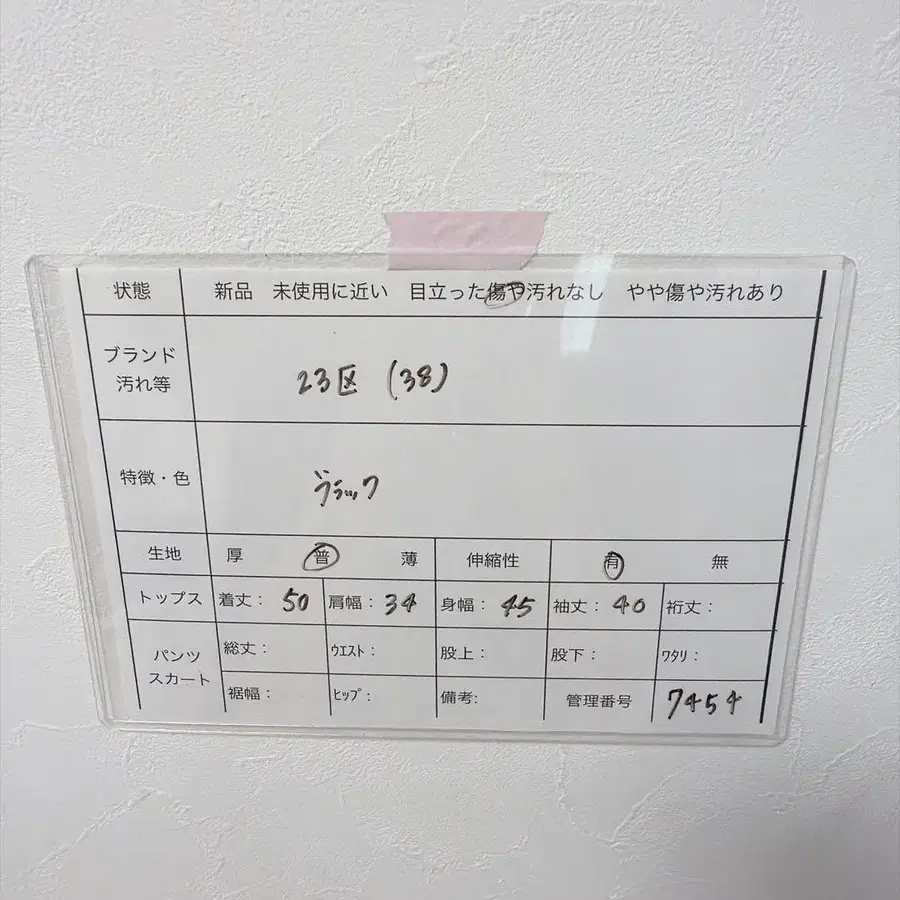 状態 新品 未使用に近い 目立った傷や汚れなし やや傷や汚れあり
ブランド
汚れ等
23区 (38)
特徴・色
ブラック
生地 厚 普 薄 伸縮性 有 無
トップス 着丈: 50 肩幅: 34 身幅: 45 袖丈: 40 裄丈:
パンツ
スカート
総丈: ウエスト: 股上: 股下: ワタリ:
裾幅: ヒップ: 備考: 管理番号 7454